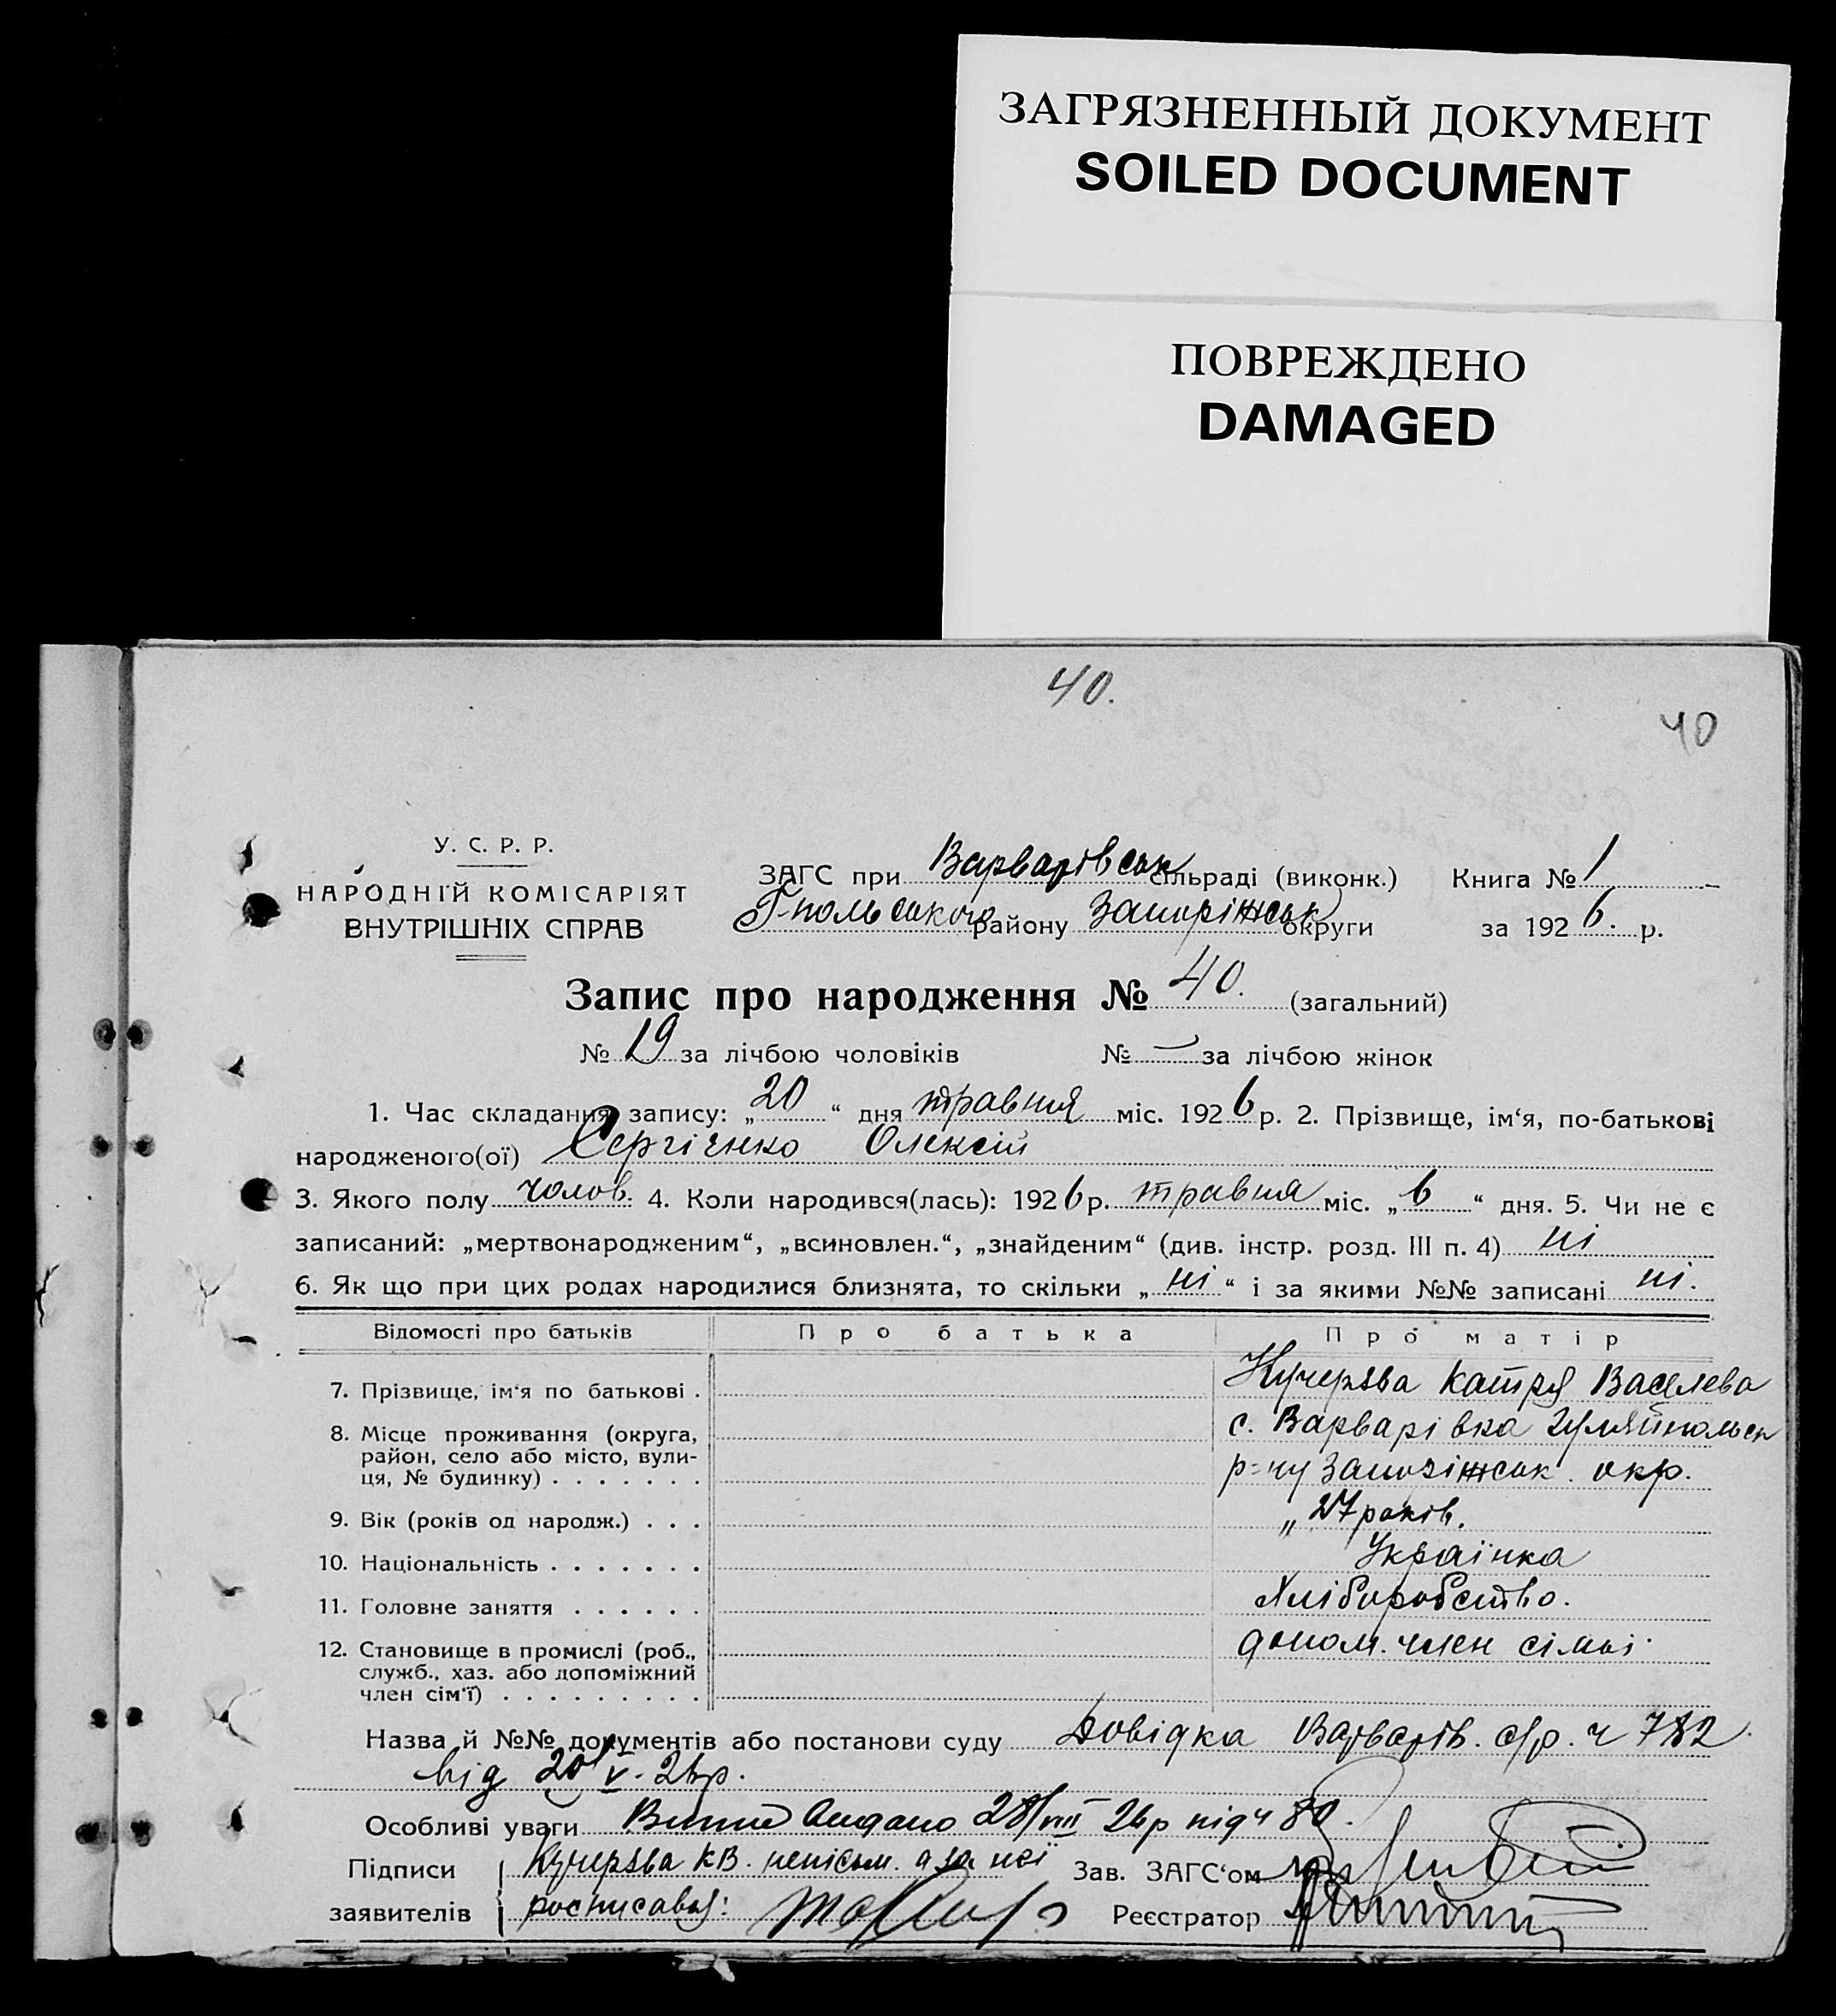 ЗАГРЯЗНЕННЫЙ ДОКУМЕНТ
SOILED DOCUMENT
ПОВРЕЖДЕНО
DAMAGED
40.
40
У. С. Р. Р.
НАРОДНІЙ КОМІСАРІЯТ
ВНУТРІШНІХ СПРАВ
ЗАГС при Варварівськ сільраді (виконк.) Книга № 1
Г-польського району Запоріжськ округи за 1926. р.
Запис про народження № 40. (загальний)
№ 19 за лічбою чоловіків № — за лічбою жінок
1. Час складання запису: „20“ дня травня міс. 1926 р. 2. Прізвище, ім‘я, по-батькові
народженого(ої) Сергієнко Олексій
3. Якого полу чолов. 4. Коли народився(лась): 1926 р. травня міс. „6“ дня. 5. Чи не є
записаний: „мертвонародженим“, „всиновлен.“, „знайденим“ (див. інстр. розд. III п. 4) ні
6. Як що при цих родах народилися близнята, то скільки „ні“ і за якими №№ записані ні.
Відомості про батьків Про батька Про матір
7. Прізвище, ім‘я по батькові . Кучерява Катря Василева
8. Місце проживання (округа, с. Варварівка Гуляйпольськ
район, село або місто, вули- р=ну Запоріжськ. окр.
ця, № будинку) . . . . . . .
9. Вік (років од народж.) . . . „ 27 років.
10. Національність . . . . . . . Українка
11. Головне заняття . . . . . . Хліборобство.
12. Становище в промислі (роб., допом. член сімьі
служб., хаз. або допоміжний
член сім‘ї) . . . . . . . . .
Назва й №№ документів або постанови суду Довідка Варварів. с/р. ч 782
від 20/V-26р.
Особливі уваги 28/VIII 26р під ч 80.
Підписи Кучерява К.В. неписьм. а за неї Зав. ЗАГС‘ом
заявителів росписався: Реєстратор